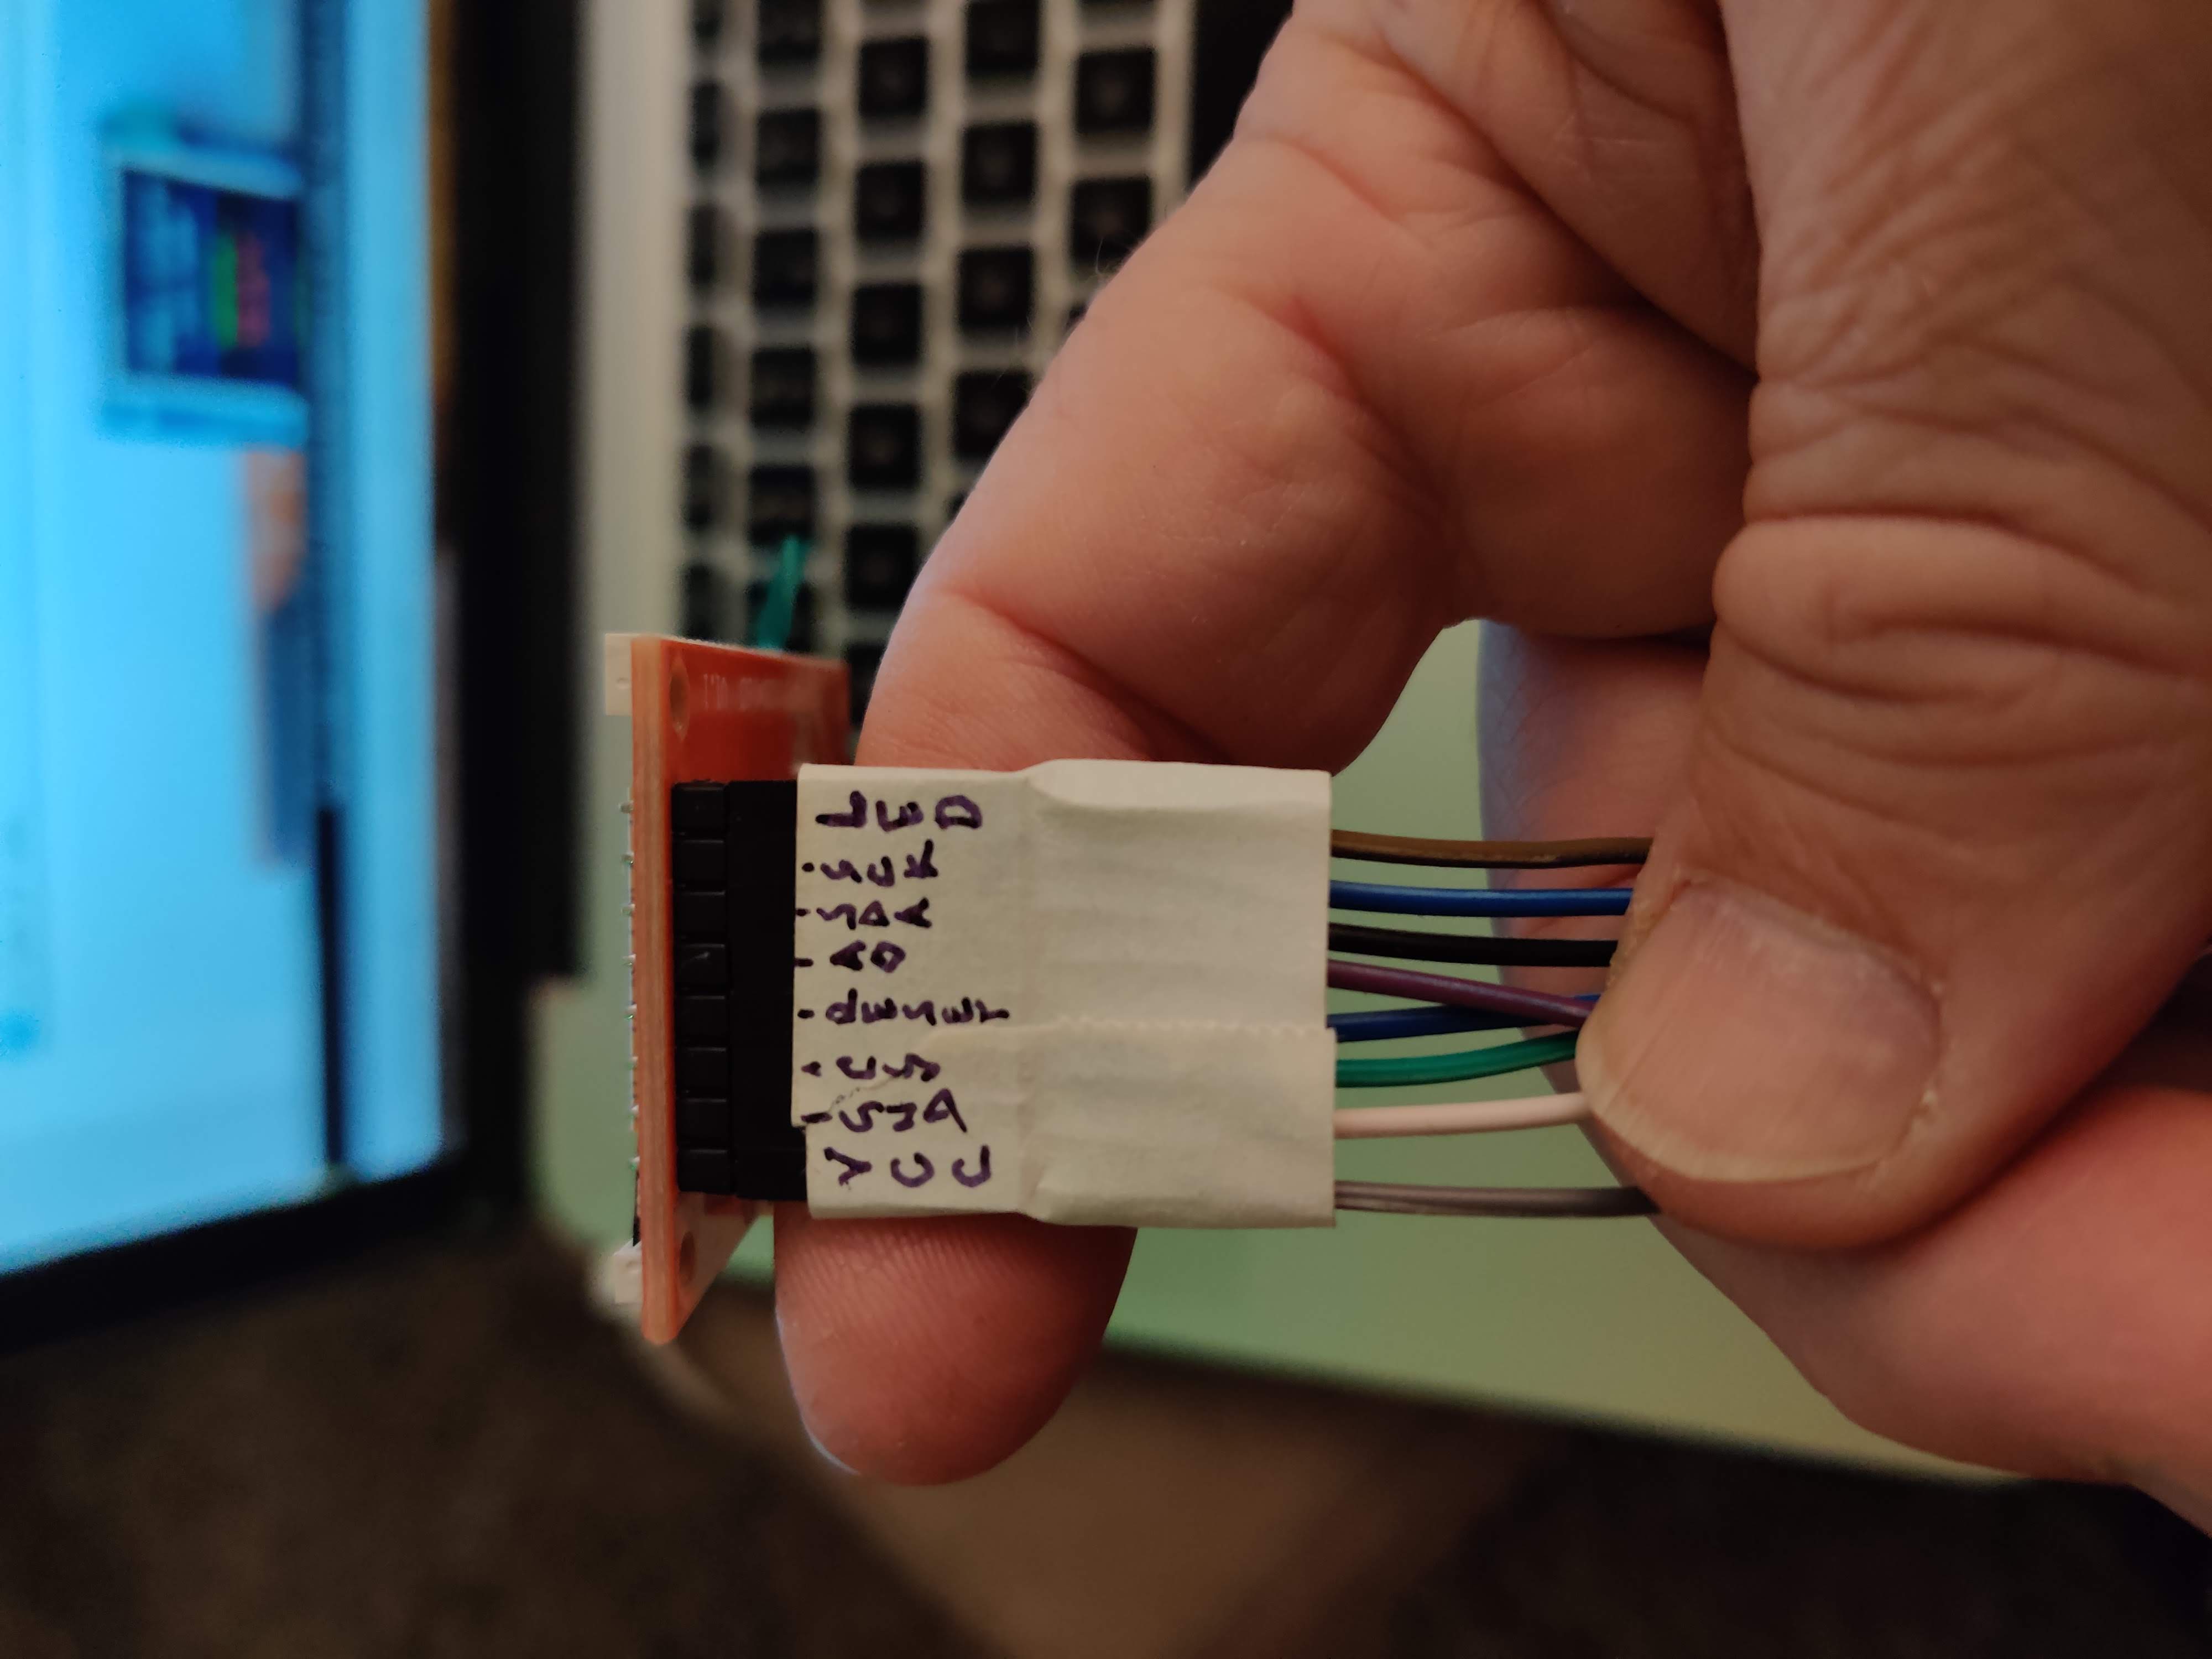 VCC
GND
CS
RESET
AO
SDA
SCK
LED